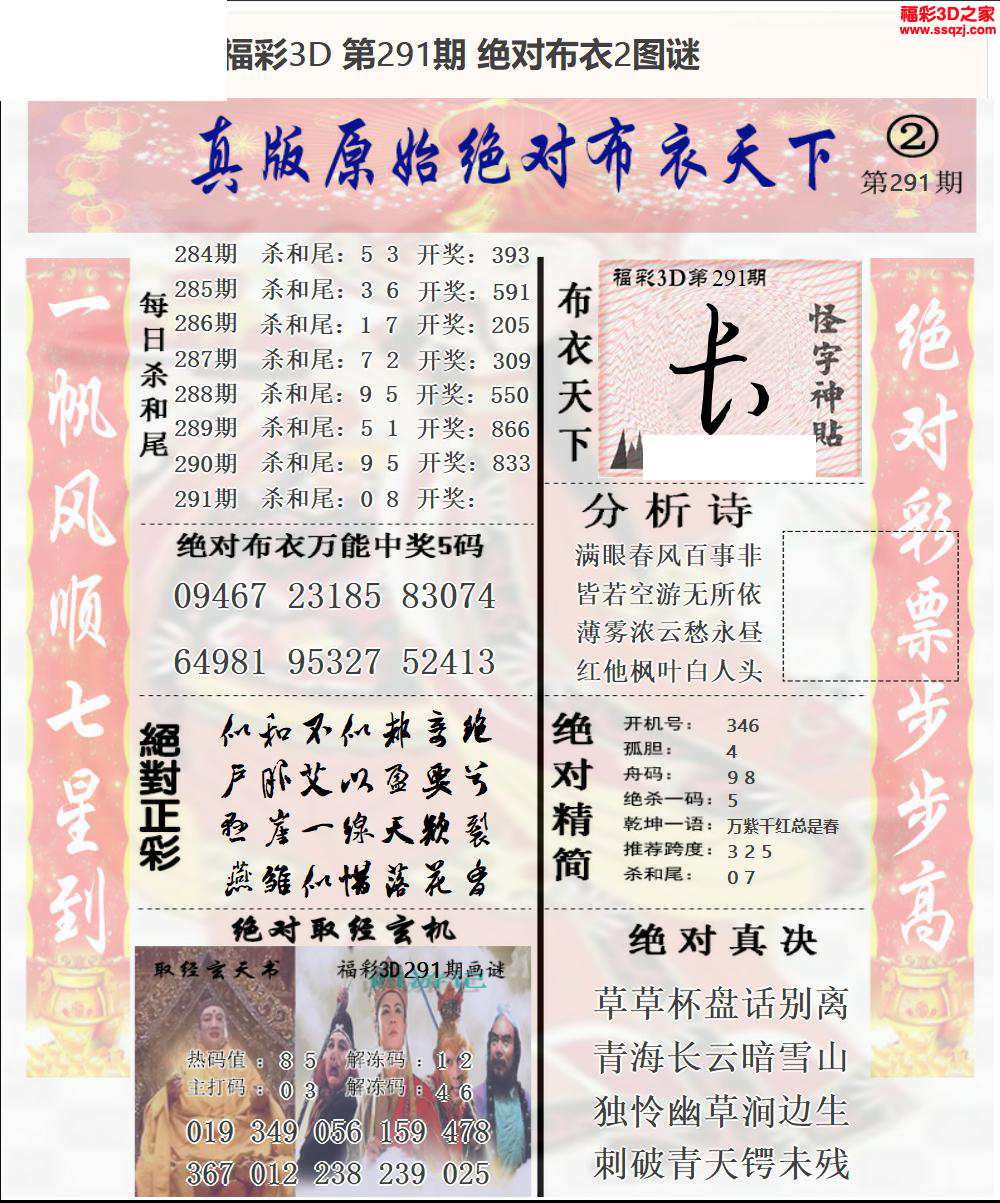 福彩3D之家
www.ssqzj.com
福彩3D 第291期 绝对布衣2图谜
真版原始绝对布衣天下
②
第291期
一帆风顺七星到
每日杀和尾
284期 杀和尾：5 3 开奖：393
285期 杀和尾：3 6 开奖：591
286期 杀和尾：1 7 开奖：205
287期 杀和尾：7 2 开奖：309
288期 杀和尾：9 5 开奖：550
289期 杀和尾：5 1 开奖：866
290期 杀和尾：9 5 开奖：833
291期 杀和尾：0 8 开奖：
绝对布衣万能中奖5码
09467 23185 83074
64981 95327 52413
絕對正彩
似和不似都奇绝
一线天
燕雏似惜落花香
绝对取经玄机
取经玄天书
福彩3D291期画谜
热码值：8 5 解冻码：1 2
主打码：0 3 解冻码：4 6
019 349 056 159 478
367 012 238 239 025
布衣天下
福彩3D第291期
怪字神贴
分析诗
满眼春风百事非
皆若空游无所依
薄雾浓云愁永昼
红他枫叶白人头
绝对精简
开机号： 346
孤胆： 4
舟码： 9 8
绝杀一码：5
乾坤一语：万紫千红总是春
推荐跨度：3 2 5
杀和尾： 0 7
绝对真决
草草杯盘话别离
青海长云暗雪山
独怜幽草涧边生
刺破青天锷未残
绝对彩票步步高